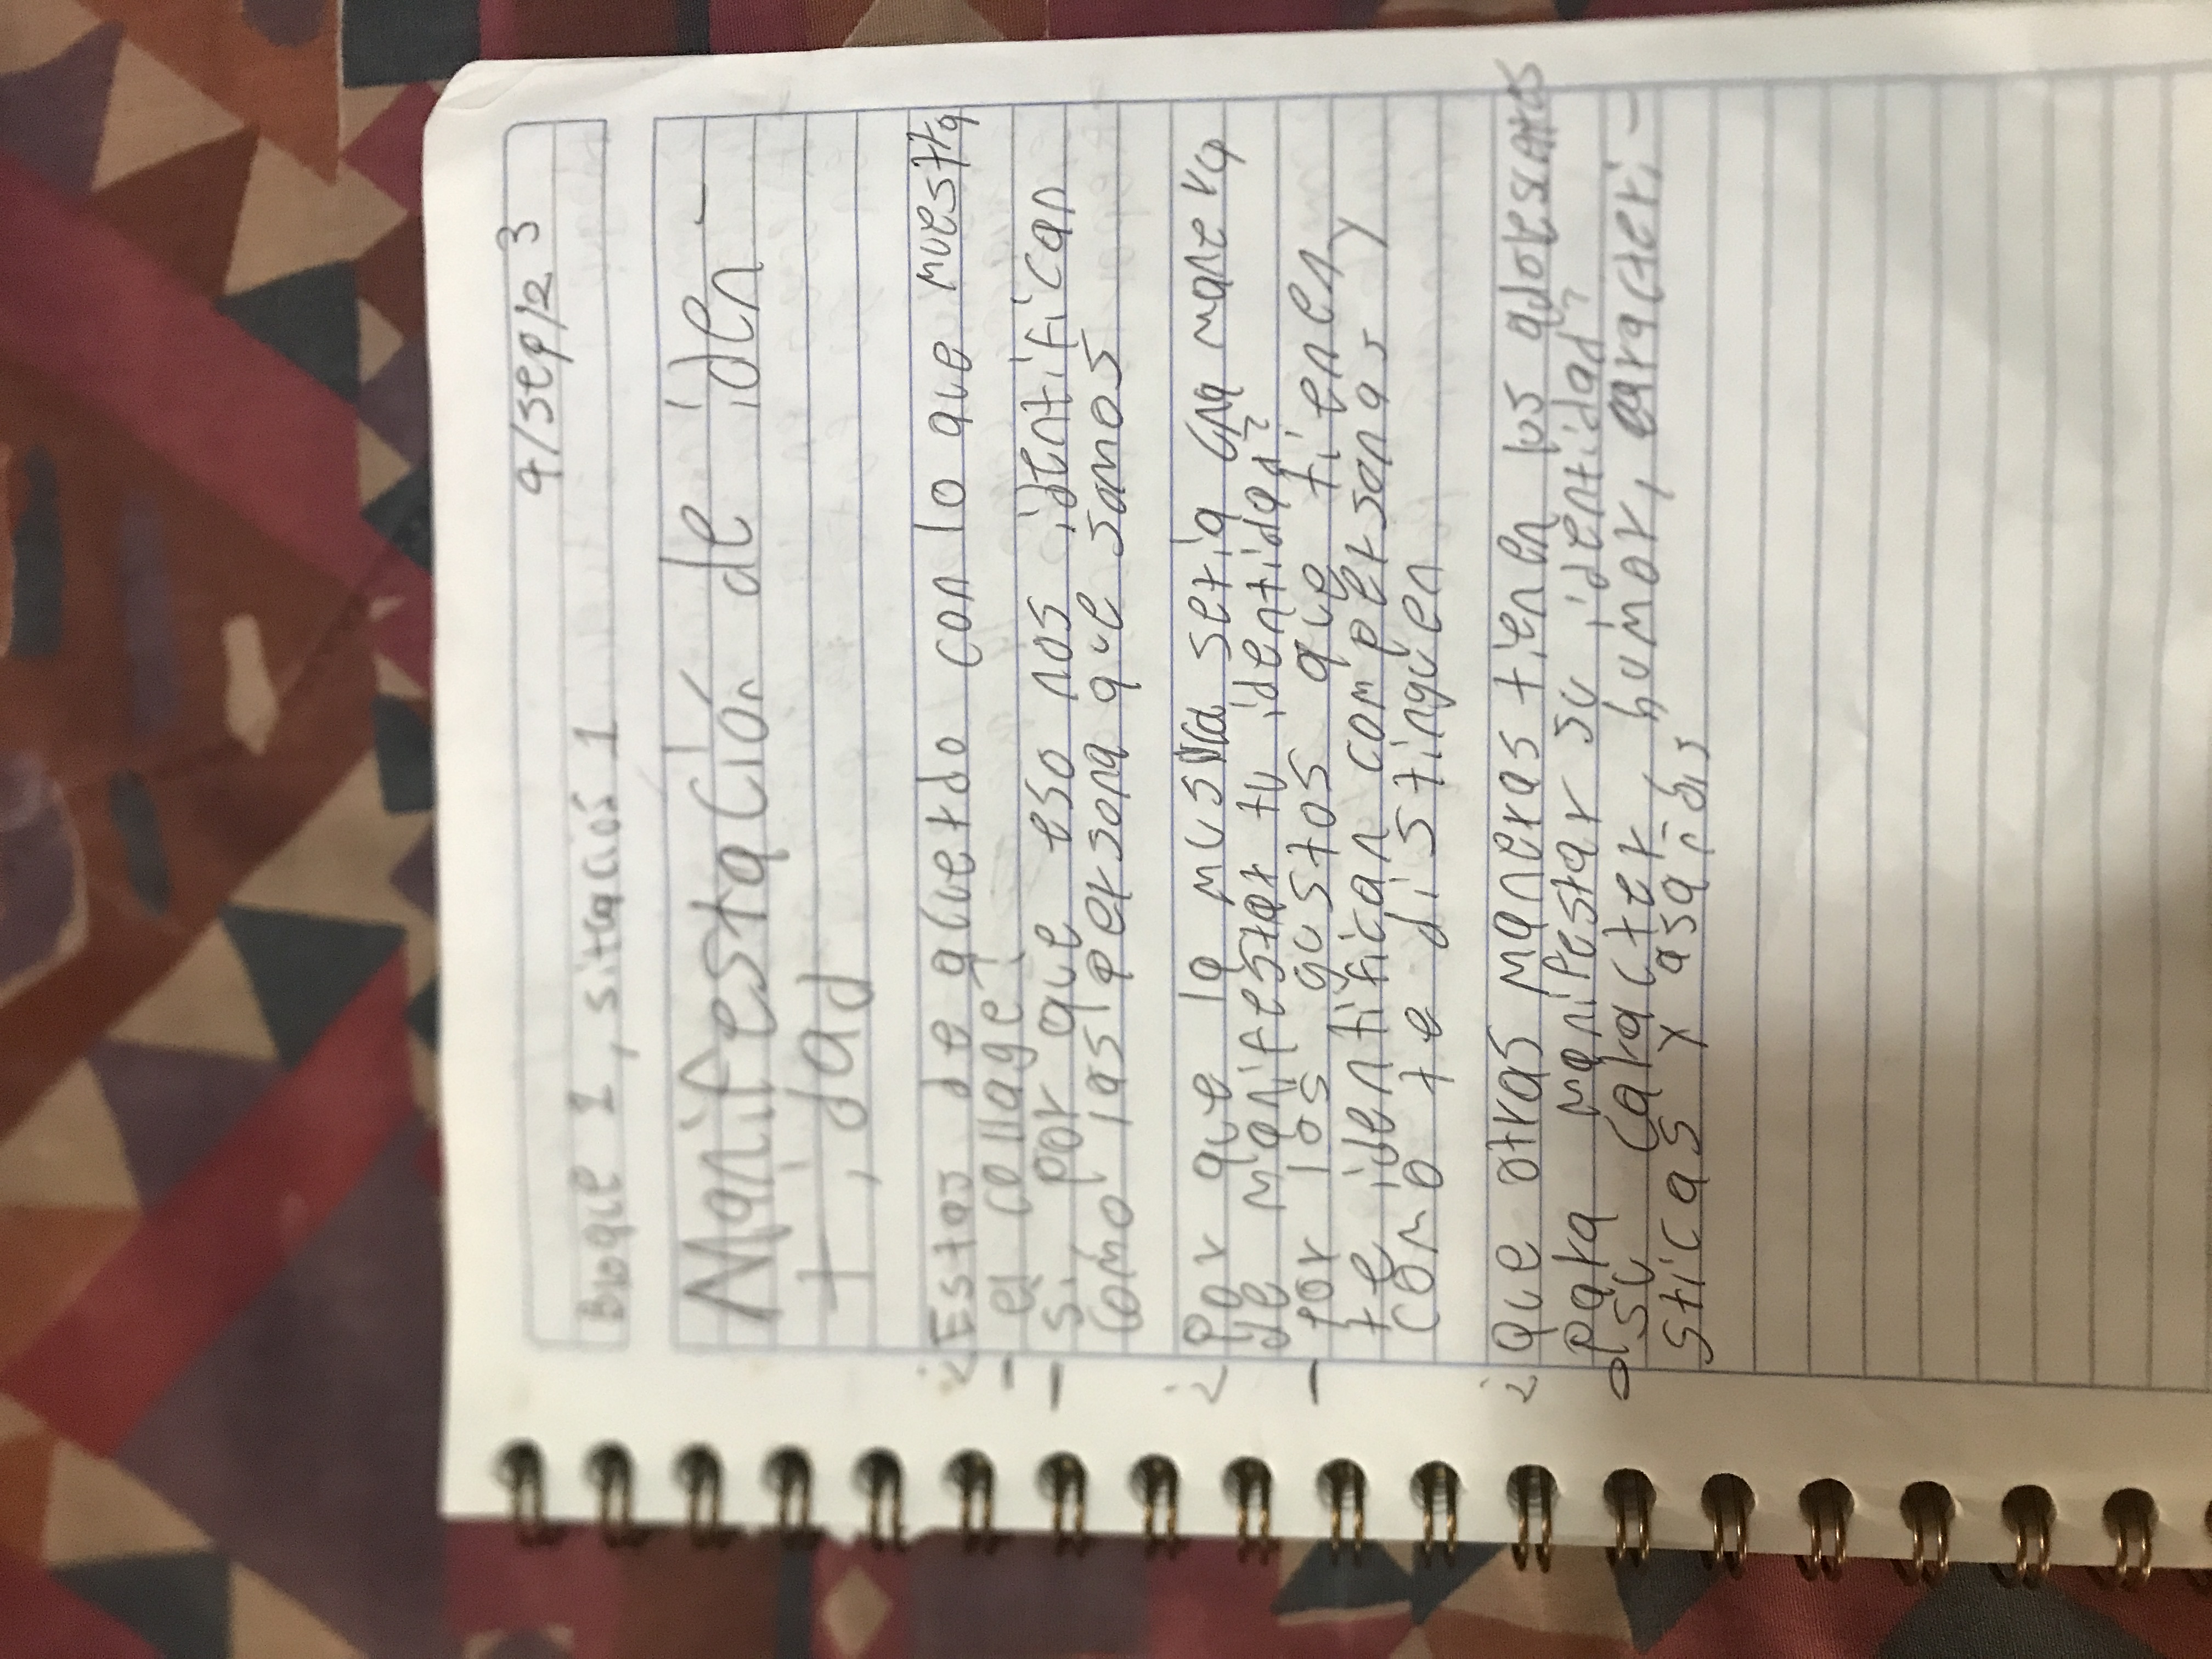 4/sep/23
Bloque 1, sitación 1
Manifestación de iden-
tidad
¿Estas de acuerdo con lo que muestra
- el collage?
- si por que eso nos identifican
como las persona que samos
¿Por que la musica seria una manera
de manifestar tu identidad?
- por los gustos que tienen
te identifican com persanas y
como te distinguen
¿que otras maneras tienen los adolescentes
para manifestar su identidad?
o su caracter humor, caracteri-
sticas y